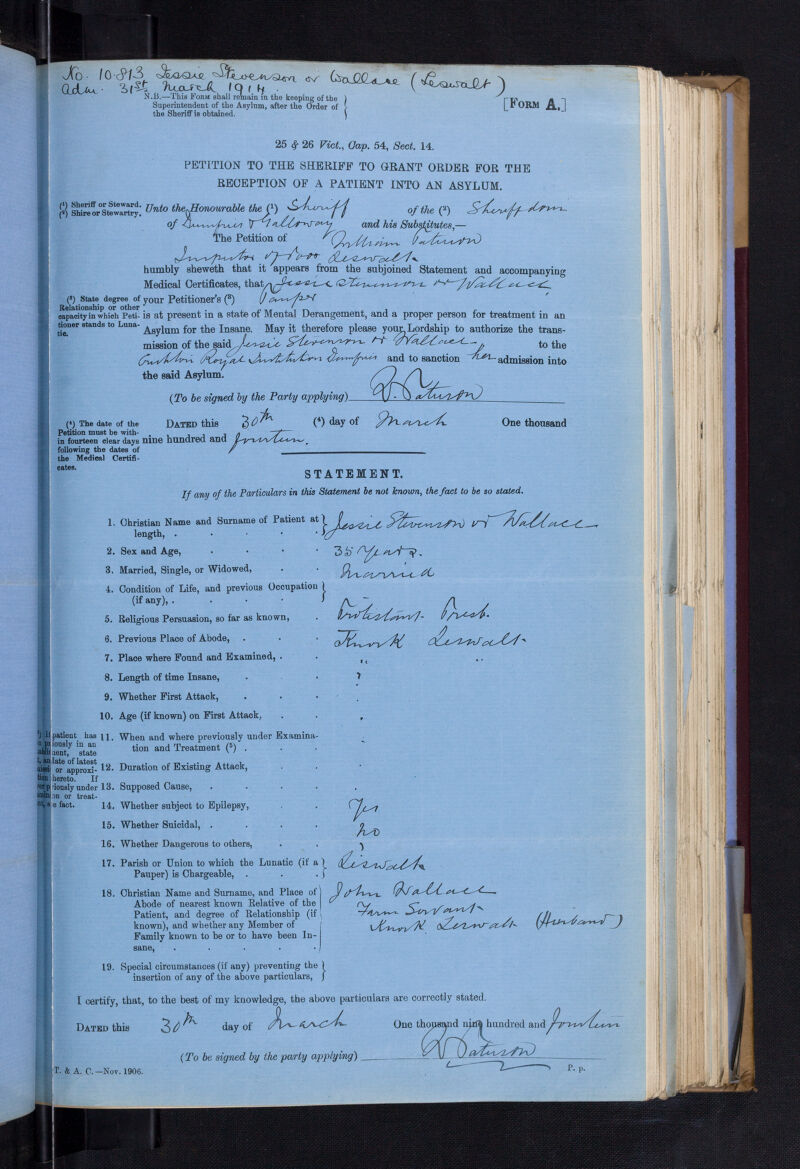 No. 10.813 Jessie Stevenson or Wallace (Leswalt)
Adm. 31st March 1914
N.B.—This Form shall remain in the keeping of the
Superintendent of the Asylum, after the Order of
the Sheriff is obtained.
[Form A.]
25 & 26 Vict., Cap. 54, Sect. 14.
PETITION TO THE SHERIFF TO GRANT ORDER FOR THE
RECEPTION OF A PATIENT INTO AN ASYLUM.
(1) Sheriff or Steward.
(2) Shire or Stewartry.
Unto the Honourable the (1) Sheriff of the (2) Sheriffdom
of Dumfries & Galloway and his Substitutes,—
The Petition of William Paterson
Inspector of Poor Leswalt
humbly sheweth that it appears from the subjoined Statement and accompanying
Medical Certificates, that Jessie Stevenson or Wallace
(3) State degree of
Relationship or other
capacity in which Peti-
tioner stands to Luna-
tic.
your Petitioner's (3) Pauper
is at present in a state of Mental Derangement, and a proper person for treatment in an
Asylum for the Insane. May it therefore please your Lordship to authorize the trans-
mission of the said Jessie Stevenson or Wallace to the
Crichton Royal Institution Dumfries and to sanction her admission into
the said Asylum.
(To be signed by the Party applying) W. Paterson
(4) The date of the
Petition must be with-
in fourteen clear days
following the dates of
the Medical Certifi-
cates.
Dated this 30th (4) day of March One thousand
nine hundred and fourteen.
STATEMENT.
If any of the Particulars in this Statement be not known, the fact to be so stated.
1. Christian Name and Surname of Patient at
length, . Jessie Stevenson or Wallace
2. Sex and Age, 35 Years.
3. Married, Single, or Widowed, Married
4. Condition of Life, and previous Occupation
(if any), .
5. Religious Persuasion, so far as known, Protestant Presb.
6. Previous Place of Abode, . Knock Leswalt
7. Place where Found and Examined, . " "
8. Length of time Insane, ?
9. Whether First Attack,
10. Age (if known) on First Attack,
patient has
iously in an
ment, state
date of latest
or approxi-
hereto. If
riously under
on or treat-
e fact.
11. When and where previously under Examina-
tion and Treatment (5) .
12. Duration of Existing Attack,
13. Supposed Cause,
14. Whether subject to Epilepsy, Yes
15. Whether Suicidal, . No
16. Whether Dangerous to others, ?
17. Parish or Union to which the Lunatic (if a
Pauper) is Chargeable, . Leswalt
18. Christian Name and Surname, and Place of
Abode of nearest known Relative of the
Patient, and degree of Relationship (if
known), and whether any Member of
Family known to be or to have been In-
sane,
John Wallace
Farm Servant
Knock Leswalt (Husband)
19. Special circumstances (if any) preventing the
insertion of any of the above particulars,
I certify, that, to the best of my knowledge, the above particulars are correctly stated.
Dated this 30th day of March One thousand nine hundred and fourteen
(To be signed by the party applying) W Paterson
T. & A. C.—Nov. 1906.
P. p.